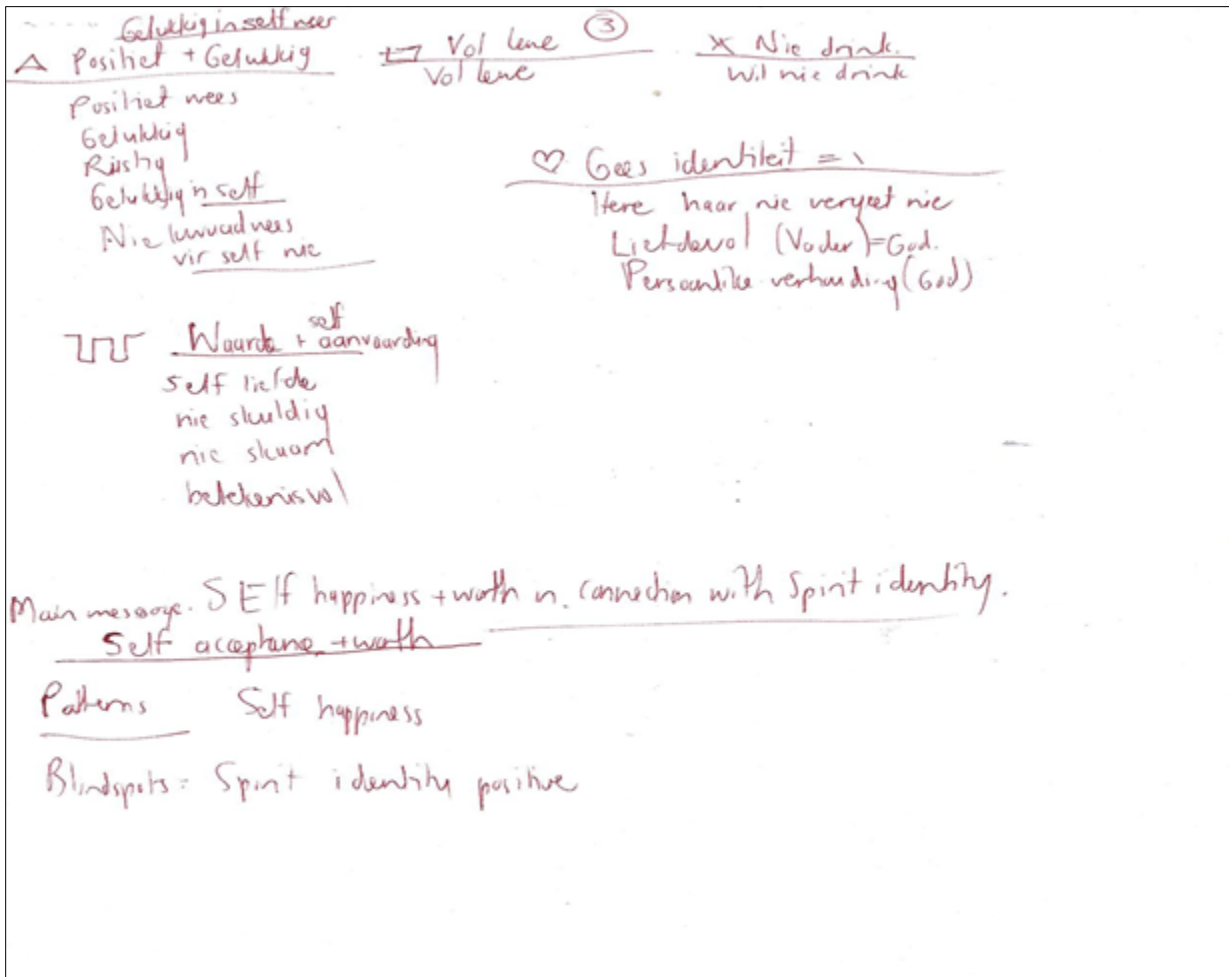 Gelukkig in self weer
Positief + Gelukkig
Positief wees
Gelukkig
Rustig
Gelukkig in self
Nie kwaad wees
vir self nie
③
Vol lewe
Vol lewe
X Nie drink.
Wil nie drink
♡ Gees identiteit =
Here haar nie vergeet nie
Liefdevol (Vader) = God.
Persoonlike verhouding (God)
self
Waarde + aanvaarding
self liefde
nie skuldig
nie skaam
betekenisvol
Main message. SElf happiness + worth in connection with Spirit identity.
Self acceptance + worth
Patterns Self happiness
Blindspots = Spirit identity positive